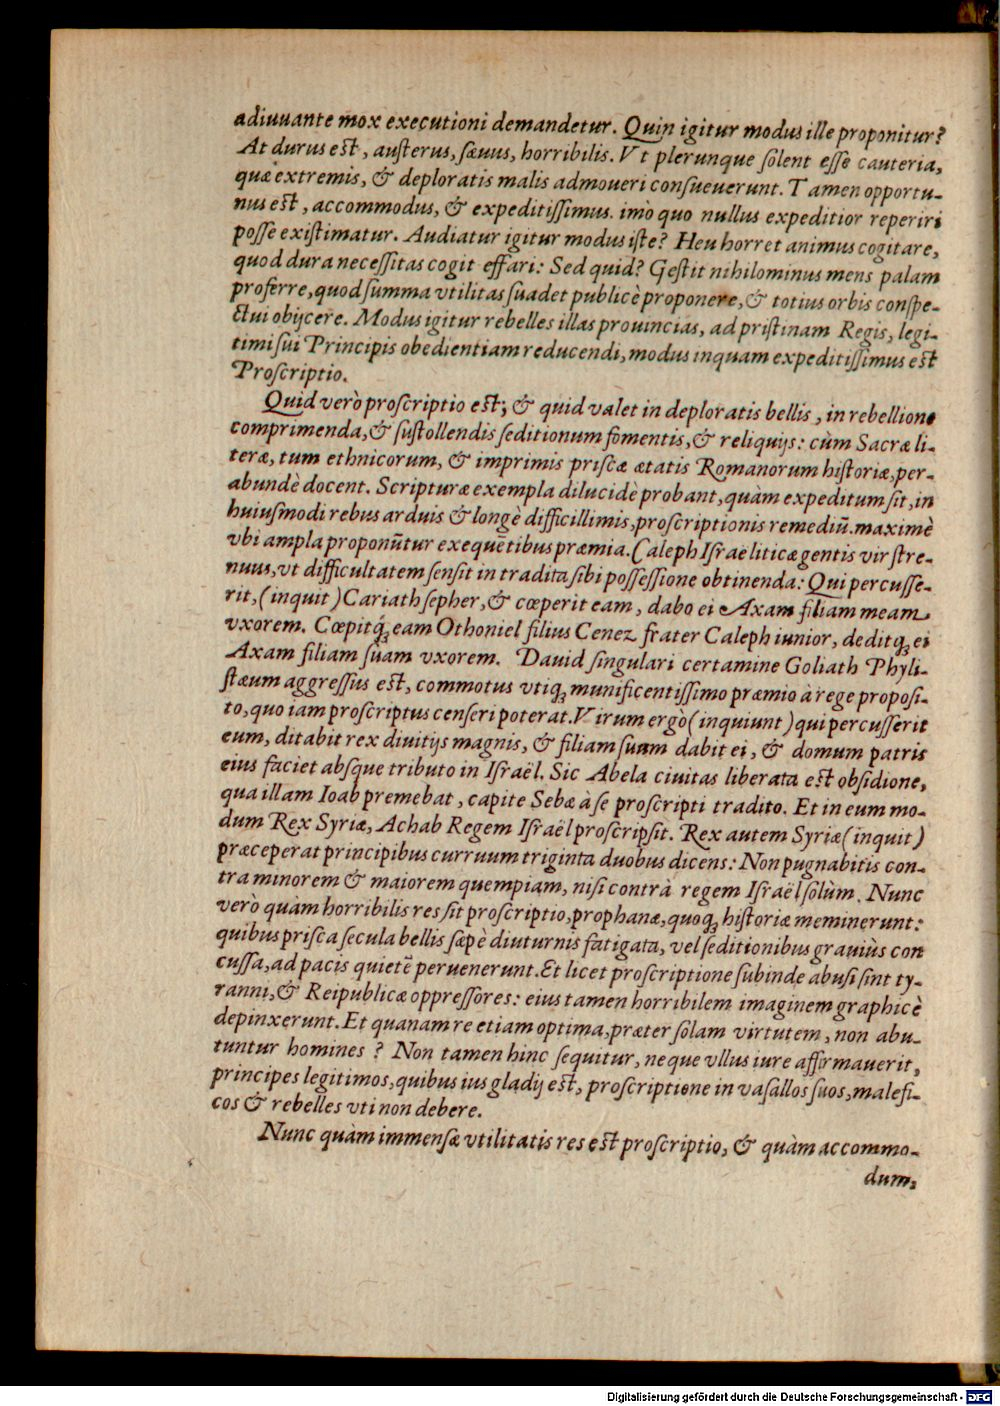 adiuuante mox executioni demandetur. Quin igitur modus ille proponitur?
At durus est, austerus, sæuus, horribilis. Vt plerunque solent esse cauteria,
quæ extremis, & deploratis malis admoueri consueuerunt. Tamen opportu-
nus est, accommodus, & expeditissimus. imò quo nullus expeditior reperiri
posse existimatur. Audiatur igitur modus iste? Heu horret animus cogitare,
quod dura necessitas cogit effari: Sed quid? Gestit nihilominus mens palam
proferre, quod summa vtilitas suadet publicè proponere, & totius orbis conspe-
ctui obijcere. Modus igitur rebelles illas prouincias, ad pristinam Regis, legi-
timi sui Principis obedientiam reducendi, modus inquam expeditissimus est
Proscriptio.
Quid verò proscriptio est; & quid valet in deploratis bellis, in rebellione
comprimenda, & sustollendis seditionum fomentis, & reliquijs: cùm Sacræ li-
teræ, tum ethnicorum, & imprimis priscæ ætatis Romanorum historiæ, per-
abundè docent. Scripturæ exempla dilucidè probant, quàm expeditum sit, in
huiusmodi rebus arduis & longè difficillimis, proscriptionis remediū. maximè
vbi ampla proponūtur exequētibus præmia. Caleph Israëliticæ gentis vir stre-
nuus, vt difficultatem sensit in tradita sibi possessione obtinenda: Qui percusse-
rit, (inquit) Cariath sepher, & cœperit eam, dabo ei Axam filiam meam
vxorem. Cœpitq́; eam Othoniel filius Cenez frater Caleph iunior, deditq; ei
Axam filiam suam vxorem. Dauid singulari certamine Goliath Phyli-
stæum aggressus est, commotus vtiq; munificentissimo præmio à rege proposi-
to, quo iam proscriptus censeri poterat. Virum ergò (inquiunt) qui percusserit
eum, ditabit rex diuitijs magnis, & filiam suam dabit ei, & domum patris
eius faciet absque tributo in Israël. Sic Abela ciuitas liberata est obsidione,
qua illam Ioab premebat, capite Sebæ à se proscripti tradito. Et in eum mo-
dum Rex Syriæ, Achab Regem Israël proscripsit. Rex autem Syriæ (inquit)
præceperat principibus curruum triginta duobus dicens: Non pugnabitis con-
tra minorem & maiorem quempiam, nisi contrà regem Israël solùm. Nunc
verò quàm horribilis res sit proscriptio, prophanæ, quoq; historiæ meminerunt:
quibus prisca secula bellis sæpè diuturnis fatigata, vel seditionibus grauiùs con
cussa, ad pacis quietē peruenerunt. Et licet proscriptione subinde abusi sint ty-
ranni, & Reipublicæ oppressores: eius tamen horribilem imaginem graphicè
depinxerunt. Et quanam re etiam optima, præter solam virtutem, non abu-
tuntur homines? Non tamen hinc sequitur, neque vllus iure affirmauerit,
principes legitimos, quibus ius gladij est, proscriptione in vasallos suos, malefi-
cos & rebelles vti non debere.
Nunc quàm immensæ vtilitatis res est proscriptio, & quàm accommo-
dum,
Digitalisierung gefördert durch die Deutsche Forschungsgemeinschaft - DFG